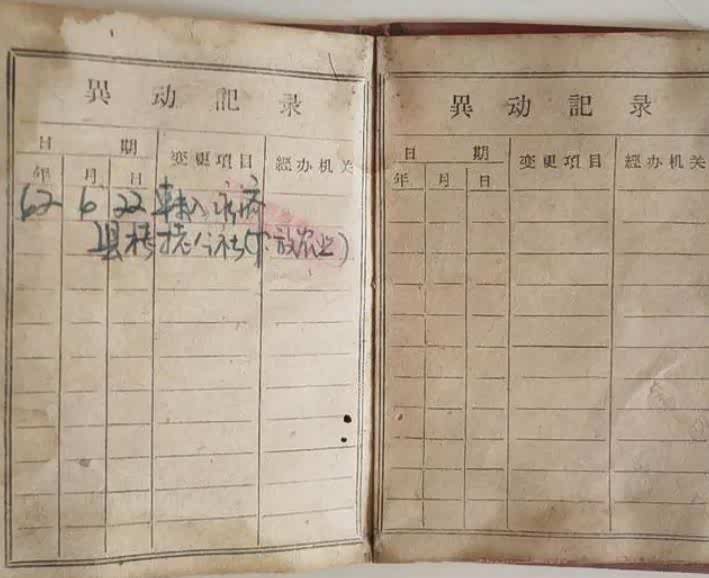 異动記录
日期 变更項目 經办机关
年 月 日
62 6 22 转入永济
县栲栳公社(下放农业)
異动記录
日期 变更項目 經办机关
年 月 日